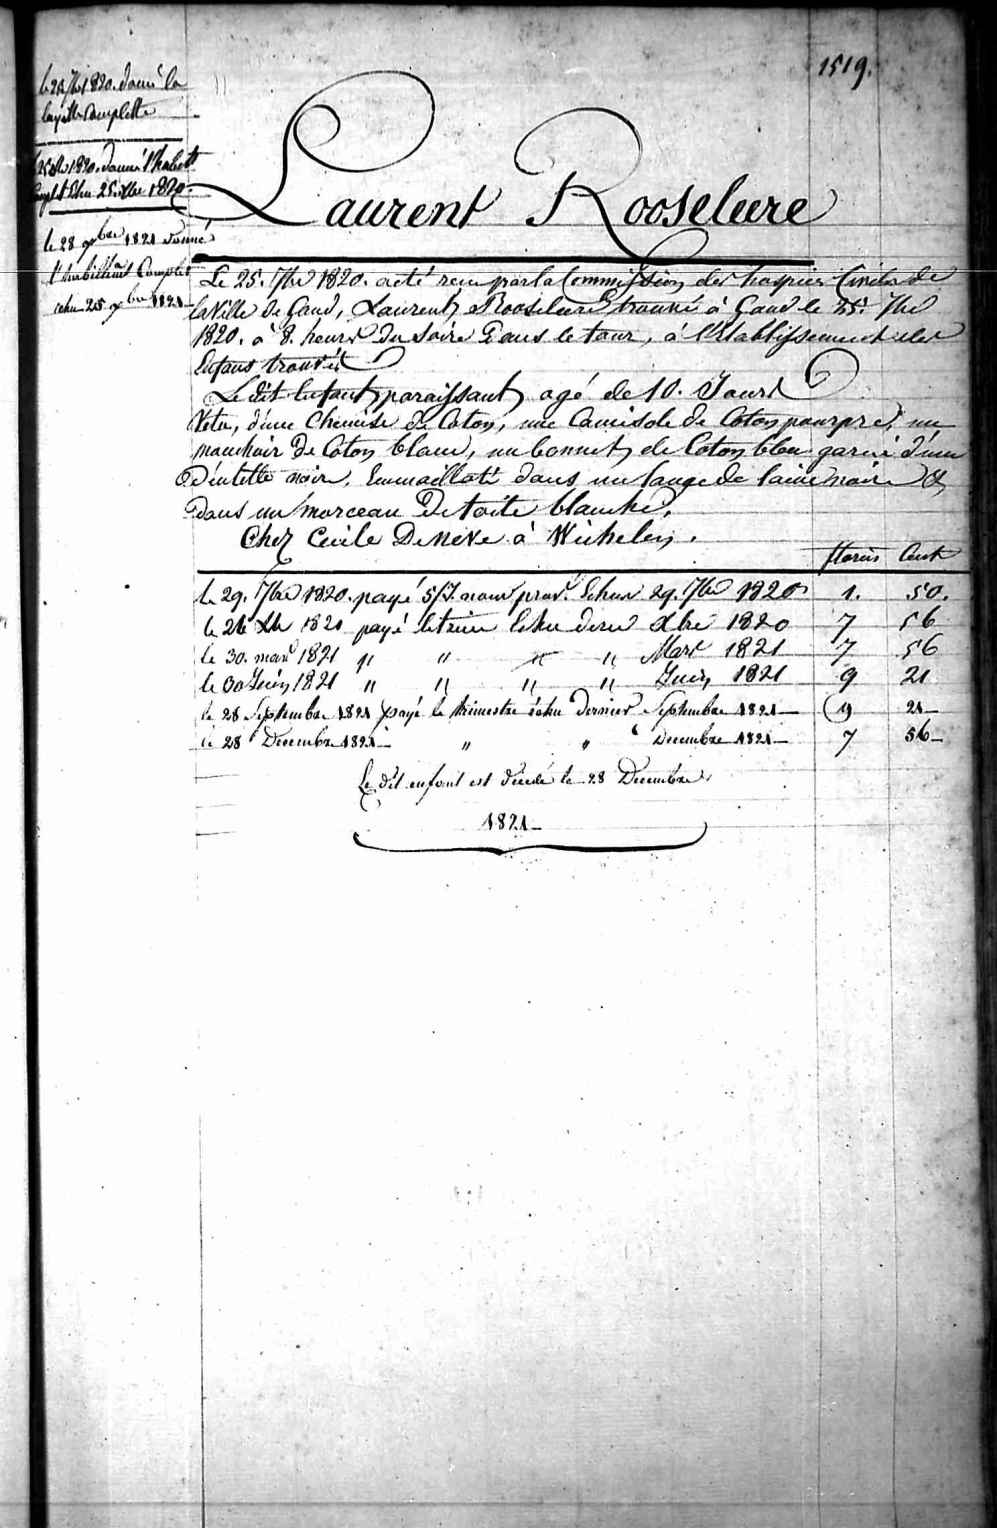 1519.
le 25 7bre 1820. donné la
layette Complette
25 Xbre 1820. donné l'habill
Complet Echu 25. Xbre 1820.
le 28 9bre 1821 donné
l'habillemt Complet
echu 25 9bre 1821
Laurent Rooseleere
Le 25. 7bre 1820. a été reçu par la Commission des hospices Civils de
la Ville de Gand, Laurent Rooseleere trouvé à Gand le 25. 7bre
1820. à 8. heures du Soire Dans le tour, à l'Etablissement des
Enfans trouvés
Le dit Enfant paraissant agé de 10. Jours
Vetu, d'une Chemise de Coton, une Camisole de Coton pourpre, un
mouchoir de Coton blanc, un bonnet de Coton bleu garni d'une
Dentelle noire, Emmailloté dans un lange de laine noire &
dans un morceau De toile blanche.
Chez Cecile De Neve à Wichelen.
florins Cents
le 29. 7bre 1820. payé 5/7. nour prov. Echu 29. 7bre 1820 1. 50.
le 26 Xbre 1820 payé le trim Echu dernr Xbre 1820 7 56
le 30. mars 1821 " " " " Mars 1821 7 56
le 30 Juin 1821 " " " " Juin 1821 9 21
le 28 Septembre 1821 payé le trimestre échu dernier Septembre 1821 9 21
le 28 Decembre 1821 " " Decembre 1821 7 56
Le dit enfant est décédé le 28 Decembre
1821